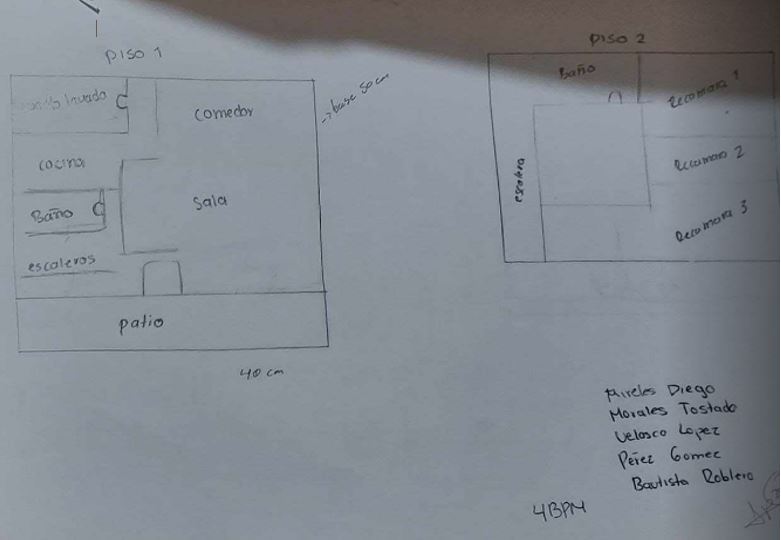 PISO 1
lavado
Comedor
->base 50 cm
cocina
Sala
Baño
escaleros
patio
40 cm
PISO 2
Baño
Recamara 1
escalera
Recamara 2
Recamara 3
Mireles Diego
Morales Tostado
Velasco Lopez
Pérez Gomez
Bautista Roblero
4BPM